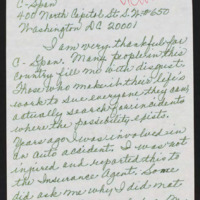 C-Span
400 North Capitol St S.W. #650
Washington DC 20001
I am very thankful for
C-Span. Many people in this
Country fill me with disgust.
Those who make it their life's
work to sue everyone they can
actually search for incidents
where the possibility exists.
Years ago I was involved in
an auto accident. I was not
injured and reported this to
the Insurance Agent. Some
did ask me why I did not